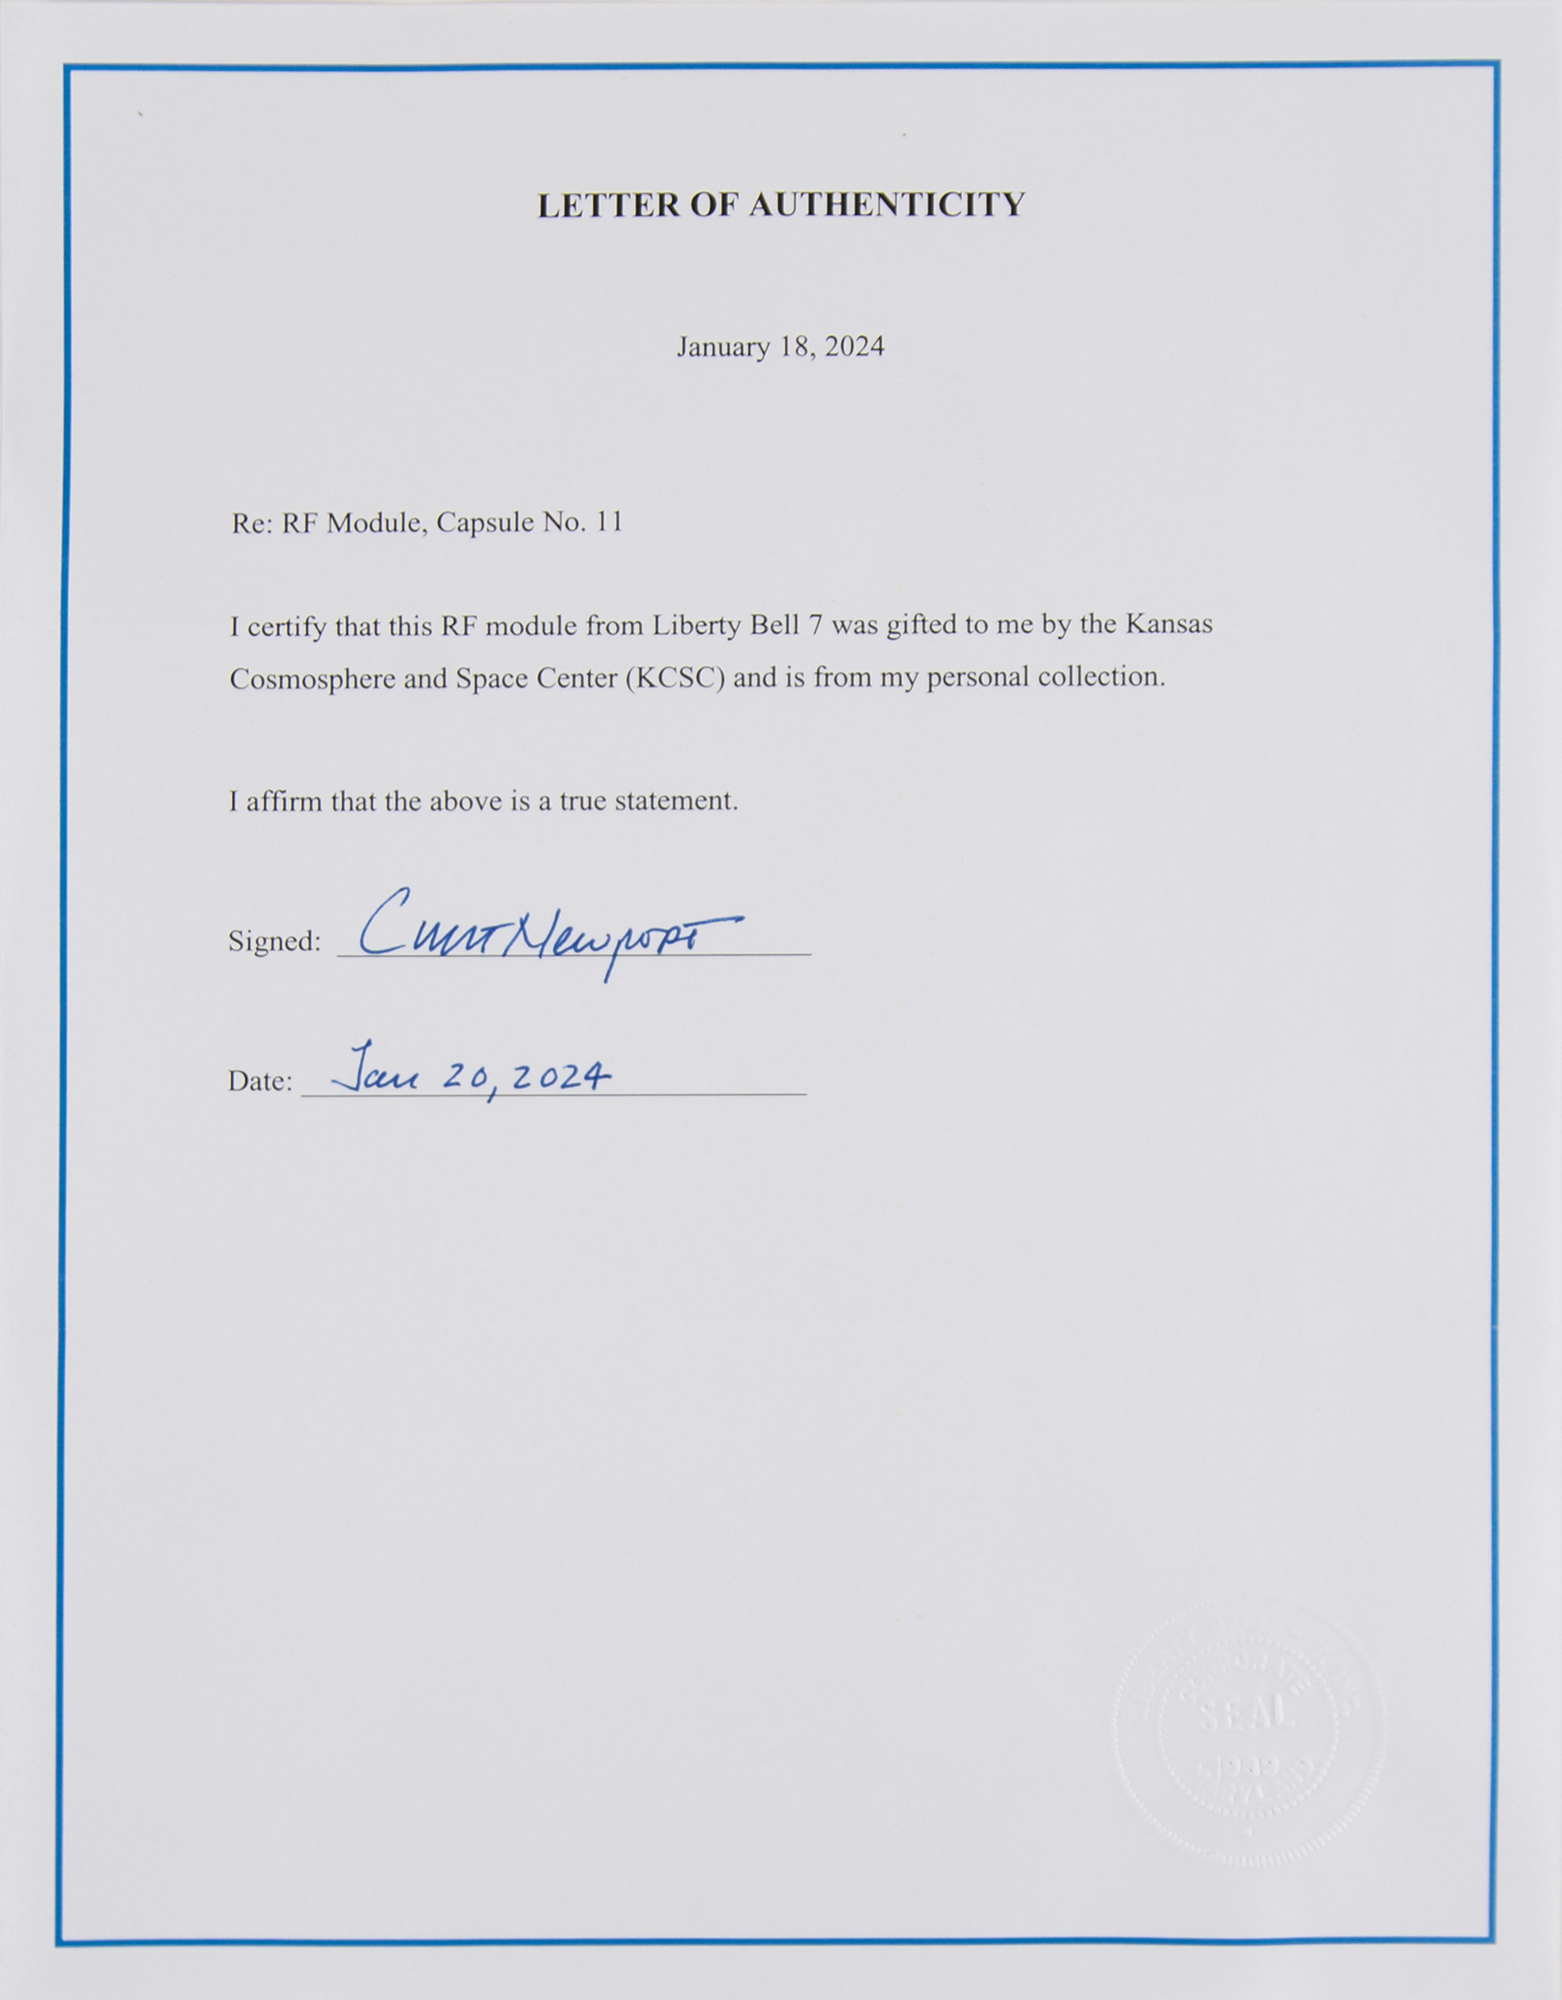 LETTER OF AUTHENTICITY
January 18, 2024
Re: RF Module, Capsule No. 11
I certify that this RF module from Liberty Bell 7 was gifted to me by the Kansas
Cosmosphere and Space Center (KCSC) and is from my personal collection.
I affirm that the above is a true statement.
Signed: Curt Newport
Date: Jan 20, 2024
CORPORATE
SEAL
1989
MARYLAND